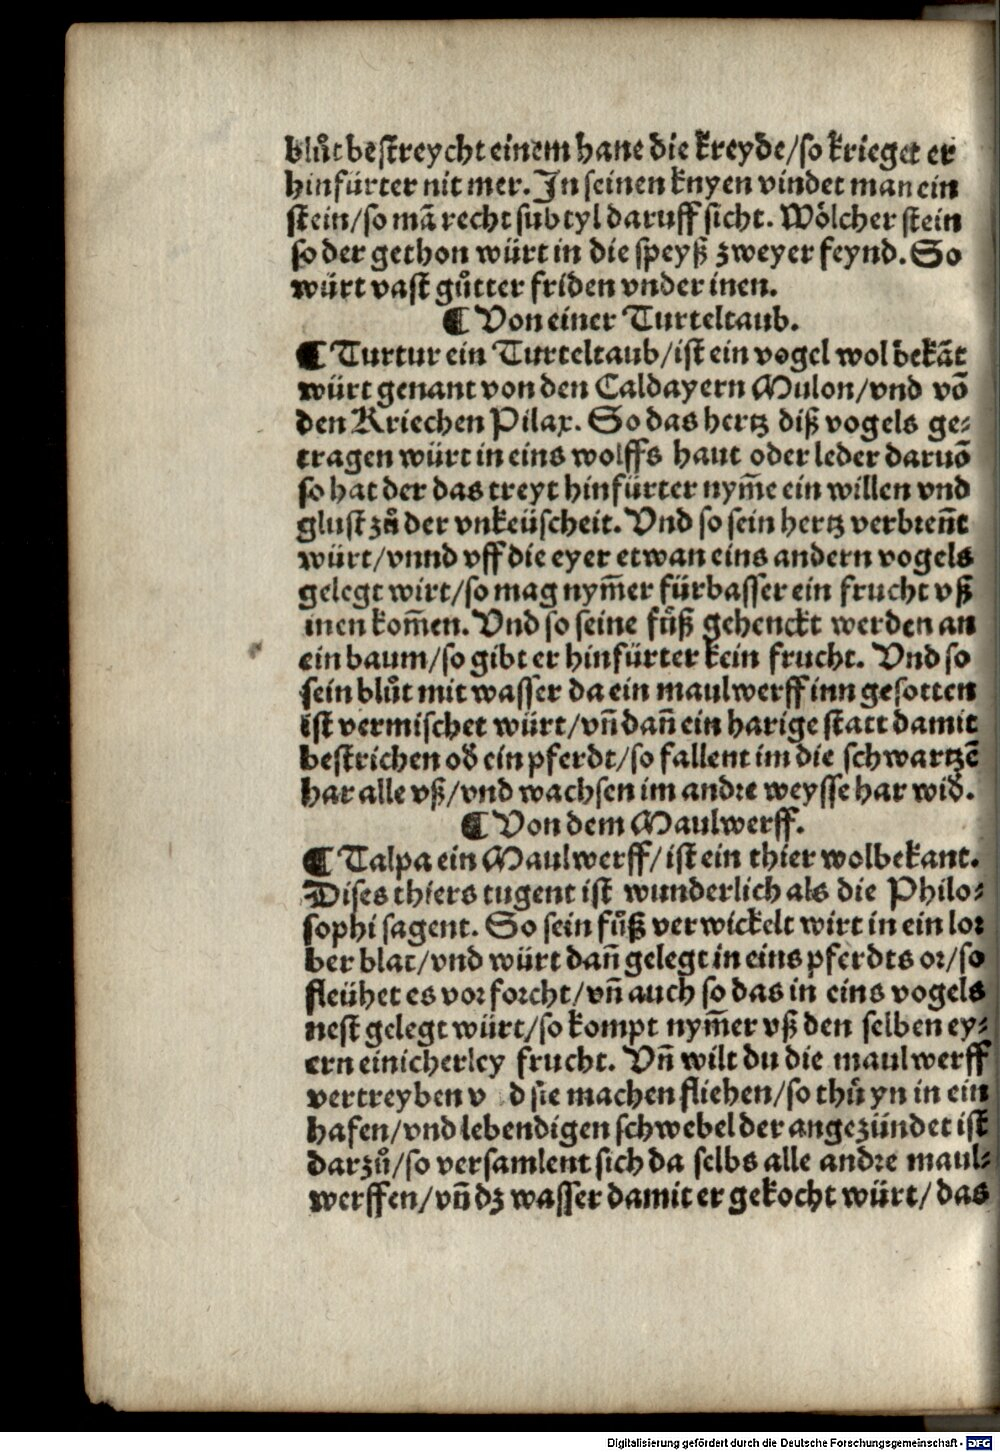 blůt bestreycht einem hane die kreyde/so krieget er
hinfürter nit mer. In seinen knyen vindet man ein
stein/so mā recht subtyl daruff sicht. Wölcher stein
so der gethon würt in die speyß zweyer feynd. So
würt vast gůtter friden vnder inen.
¶ Von einer Turteltaub.
¶ Turtur ein Turteltaub/ist ein vogel wol bekāt
würt genant von den Caldayern Mulon/vnd vō
den Kriechen Pilax. So das hertz diß vogels ge⸗
tragen würt in eins wolffs haut oder leder daruō
so hat der das treyt hinfürter nym̄e ein willen vnd
glust zů der vnkeüscheit. Vnd so sein hertz verbren̄t
würt/vnnd vff die eyer etwan eins andern vogels
gelegt wirt/so mag nym̄er fürbasser ein frucht vß
inen kom̄en. Vnd so seine fůß gehenckt werden an
ein baum/so gibt er hinfürter kein frucht. Vnd so
sein blůt mit wasser da ein maulwerff inn gesotten
ist vermischet würt/vn̄ dan̄ ein harige statt damit
bestrichen od̄ ein pferdt/so fallent im die schwartzē
har alle vß/vnd wachsen im andꝛe weysse har wid̄.
¶ Von dem Maulwerff.
¶ Talpa ein Maulwerff/ist ein thier wolbekant.
Dises thiers tugent ist wunderlich als die Philo⸗
sophi sagent. So sein fůß verwickelt wirt in ein loꝛ
ber blat/vnd würt dan̄ gelegt in eins pferdts oꝛ/so
fleühet es voꝛ foꝛcht/vn̄ auch so das in eins vogels
nest gelegt würt/so kompt nym̄er vß den selben ey⸗
ern einicherley frucht. Vn̄ wilt du die maulwerff
vertreyben v d sie machen fliehen/so thů yn in ein
hafen/vnd lebendigen schwebel der angezündet ist
darzů/so versamlent sich da selbs alle andꝛe maul⸗
werffen/vn̄ dz wasser damit er gekocht würt/das
Digitalisierung gefördert durch die Deutsche Forschungsgemeinschaft - DFG